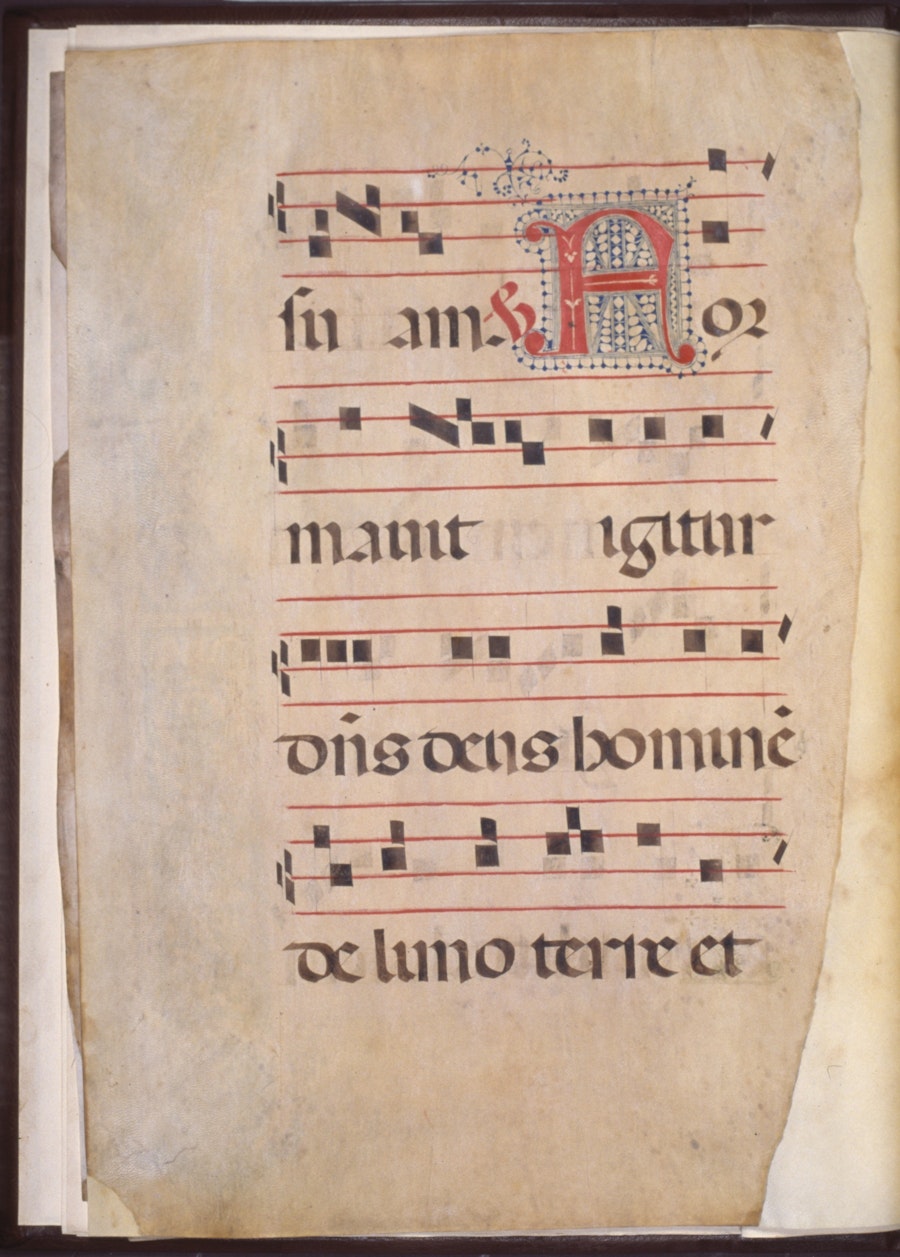 su am. ℟ For
mavit igitur
dn̄s deus hominē
de limo terre et